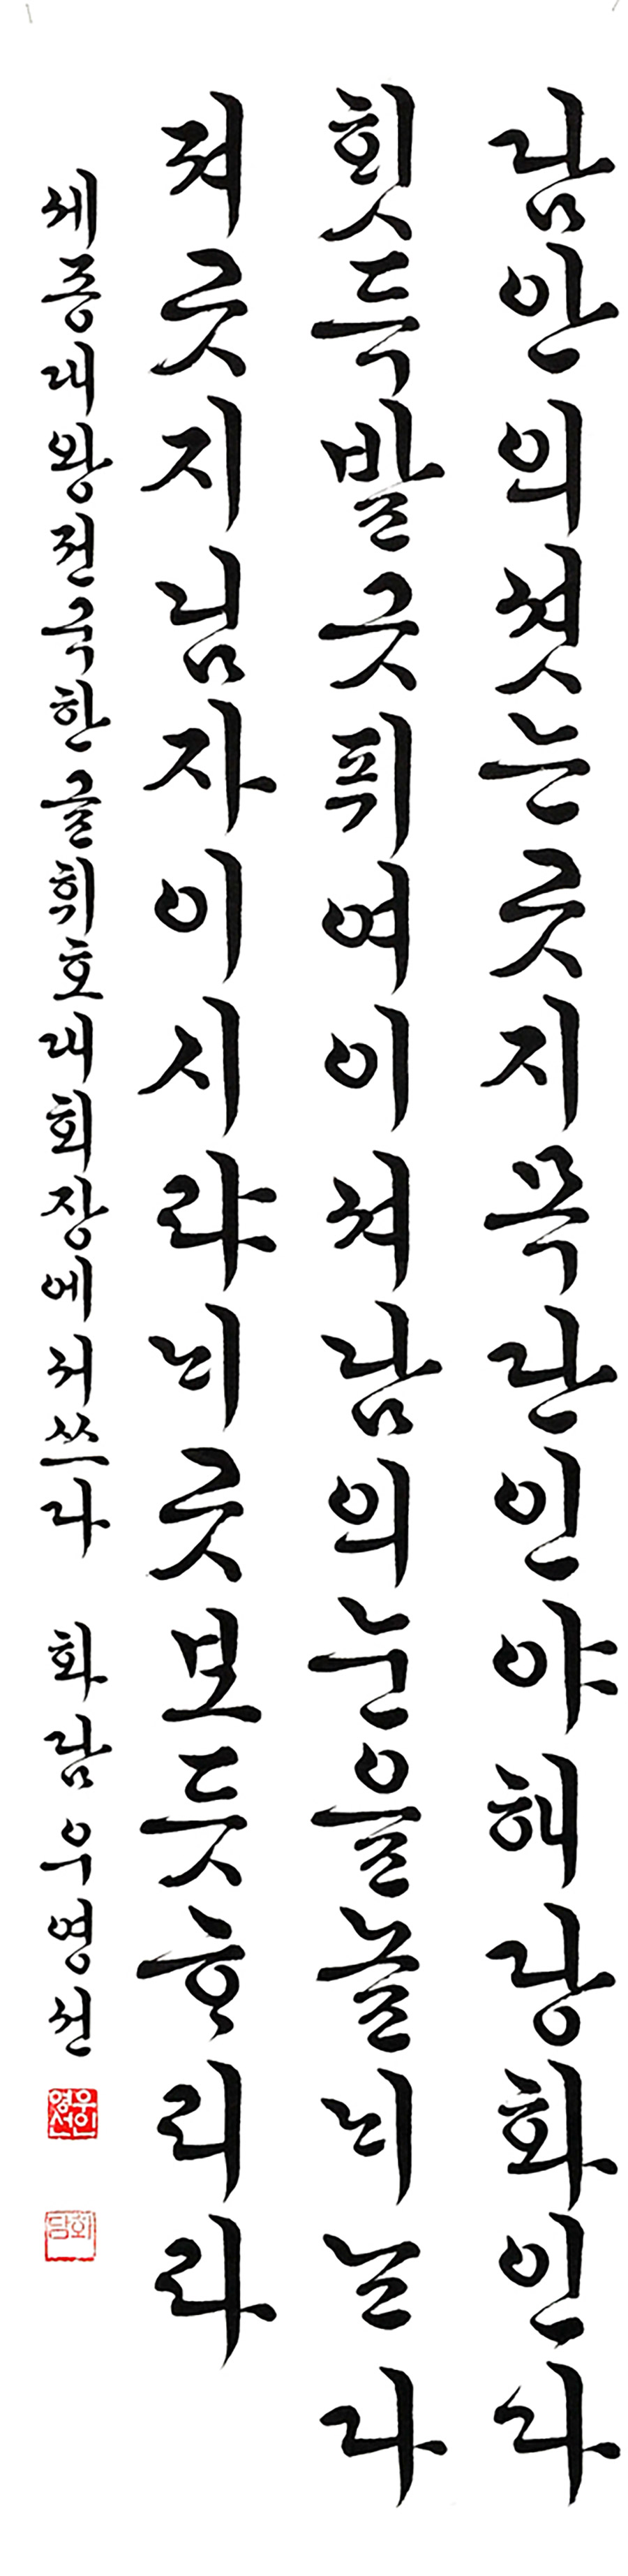 담안의셧는긋지믁단인야해당화인다
횟득발긋퓌여이셔담의눈을늘늬는다
져긋지님자이시랴늬긋보듯ᄒᆞ리라
세종대왕전국한글휘호대회장에서쓰다 화담 우영선
우인영선
화담